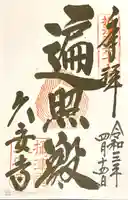 奉拝
令和三年
四月十五日
遍照殿
久安寺